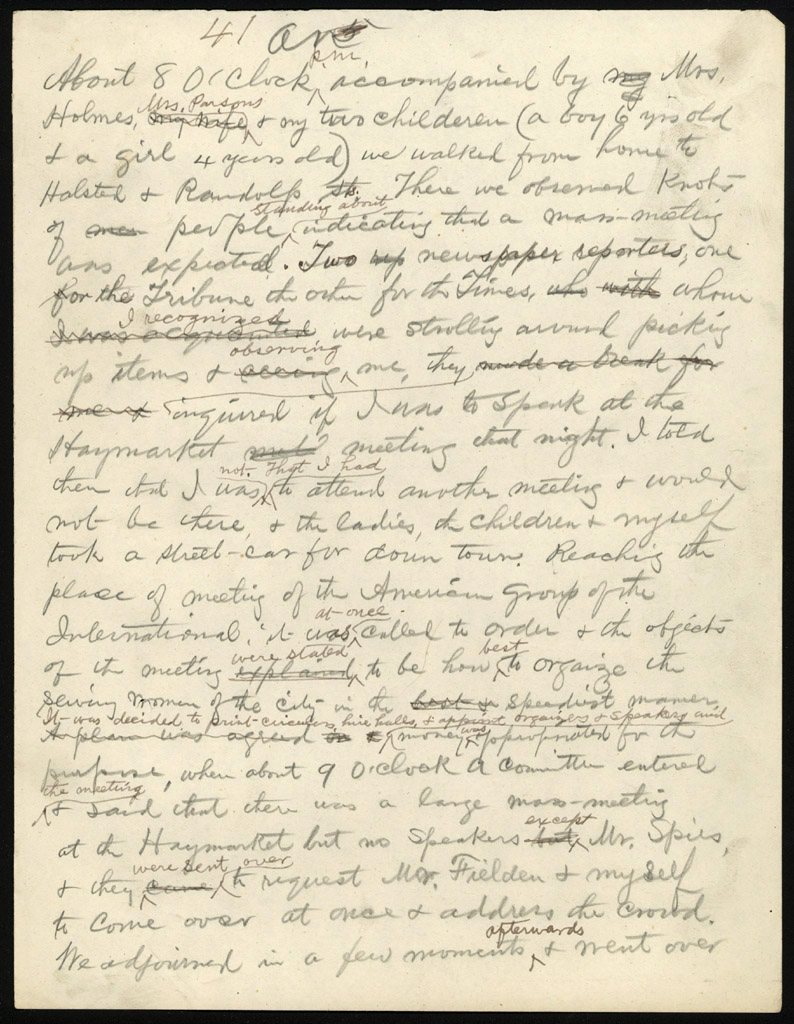 41
p.m.
About 8 O'Clock, accompanied by my Mrs.
Mrs. Parsons
Holmes, my wife, & my two childeren (a boy 6 yrs old
& a girl 4 years old) we walked from home to
Halsted & Randolph sts. There we observed Knots
standing about
of men people, indicating that a mass-meeting
was expected. Two rep newspaper reporters, one
for the Tribune the other for the Times, who with whom
I recognized
I was acquainted were strolling around picking
observing
up items & seeing me, they made a break for
me & inquired if I was to speak at the
Haymarket meeting that night. I told
not. That I had
them that I was to attend another meeting & would
not be there, & the ladies, the children & myself
took a street-car for down town. Reaching the
place of meeting of the American Group of the
at once
International, it was called to order & the objects
were stated best
of the meeting explained, to be how to orgaize the
Sewing Women of the City in the best & speediest manner
It was decided to print circulars, hire halls, & appoint organizers & speakers and
was
A plan was agreed money appropriated for the
purpose, when about 9 O'clock a committee entered
the meeting
& said that there was a large mass-meeting
except
at the Haymarket but no speakers but Mr. Spies,
were sent over
& they came to request Mr. Fielden & myself
to come over at once & address the crowd.
afterwards
We adjourned in a few moments & went over